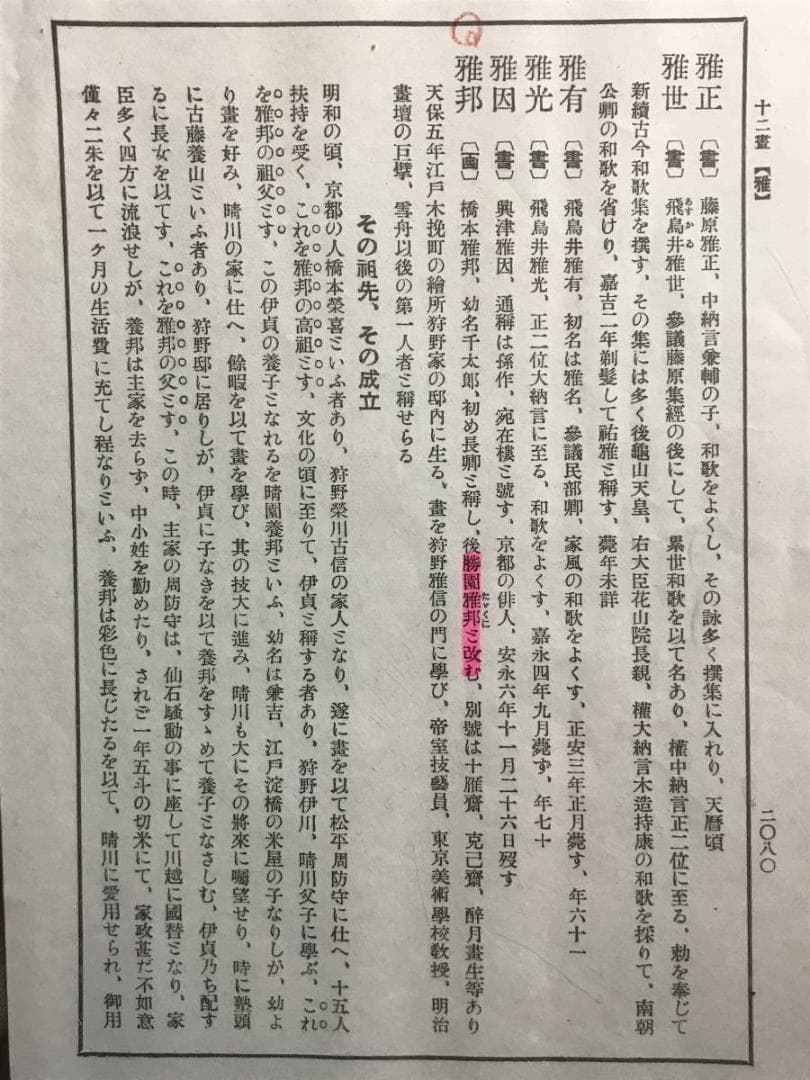 十二畫 【雅】
二〇八〇
雅正 〔書〕 藤原雅正、中納言兼輔の子、和歌をよくし、その詠多く撰集に入れり、天曆頃
雅世 〔書〕 飛鳥井雅世、參議藤原集經の後にして、累世和歌を以て名あり、權中納言正二位に至る、勅を奉じて
あすかゐ
新續古今和歌集を撰す、その集には多く後龜山天皇、右大臣花山院長親、權大納言木造持康の和歌を採りて、南朝
公卿の和歌を省けり、嘉吉二年剃髮して祐雅と稱す、薨年未詳
雅有 〔書〕 飛鳥井雅有、初名は雅名、參議民部卿、家風の和歌をよくす、正安三年正月薨ず、年六十一
雅光 〔書〕 飛鳥井雅光、正二位大納言に至る、和歌をよくす、嘉永四年九月薨ず、年七十
雅因 〔書〕 興津雅因、通稱は孫作、宛在樓と號す、京都の俳人、安永六年十一月二十六日歿す
雅邦 〔画〕 橋本雅邦、幼名千太郎、初め長卿と稱し、後勝園雅邦と改む、別號は十雁齋、克己齋、醉月畫生等あり
たゞくに
天保五年江戶木挽町の繪所狩野家の邸內に生る、畫を狩野雅信の門に學び、帝室技藝員、東京美術學校敎授、明治
畫壇の巨擘、雪舟以後の第一人者と稱せらる
その祖先、その成立
明和の頃、京都の人橋本榮喜といふ者あり、狩野榮川古信の家人となり、遂に畫を以て松平周防守に仕へ、十五人
扶持を受く、これを雅邦の高祖とす、文化の頃に至りて、伊貞と稱する者あり、狩野伊川、晴川父子に學ぶ、これ
を雅邦の祖父とす、この伊貞の養子となれるを晴園養邦といふ、幼名は兼吉、江戶淀橋の米屋の子なりしが、幼よ
り畫を好み、晴川の家に仕へ、餘暇を以て畫を學び、其の技大に進み、晴川も大にその將來に囑望せり、時に塾頭
に古藤養山といふ者あり、狩野邸に居りしが、伊貞に子なきを以て養邦をすゝめて養子となさしむ、伊貞乃ち配す
るに長女を以てす、これを雅邦の父とす、この時、主家の周防守は、仙石騷動の事に座して川越に國替となり、家
臣多く四方に流浪せしが、養邦は主家を去らず、中小姓を勤めたり、されど一年五斗の切米にて、家政甚だ不如意
僅々二朱を以て一ケ月の生活費に充てし程なりといふ、養邦は彩色に長じたるを以て、晴川に愛用せられ、御用